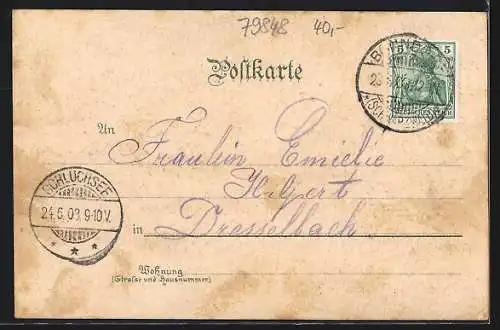 79848 40,-
Postkarte
BONND
5
An
Fräulein Emielie
Hilgert
SCHLUCHSEE
24.6.03.9-10V.
in Dresselbach
Wohnung
(Strasse und Hausnummer)